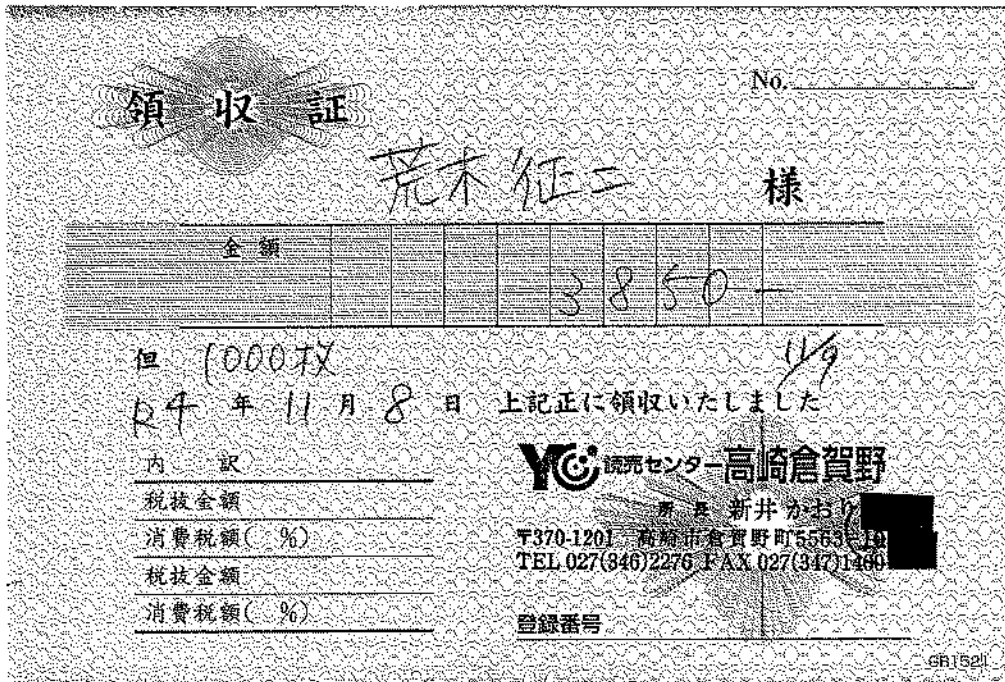 領収証
No.
荒木 征二 様
金額 3850-
但 1000枚
11/9
R4年11月8日 上記正に領収いたしました
内訳
税抜金額
消費税額( %)
税抜金額
消費税額( %)
YC 読売センター高崎倉賀野
所長 新井かおり
〒370-1201 高崎市倉賀野町5563-10
TEL 027(346)2276 FAX 027(347)1469
登録番号
GR1521